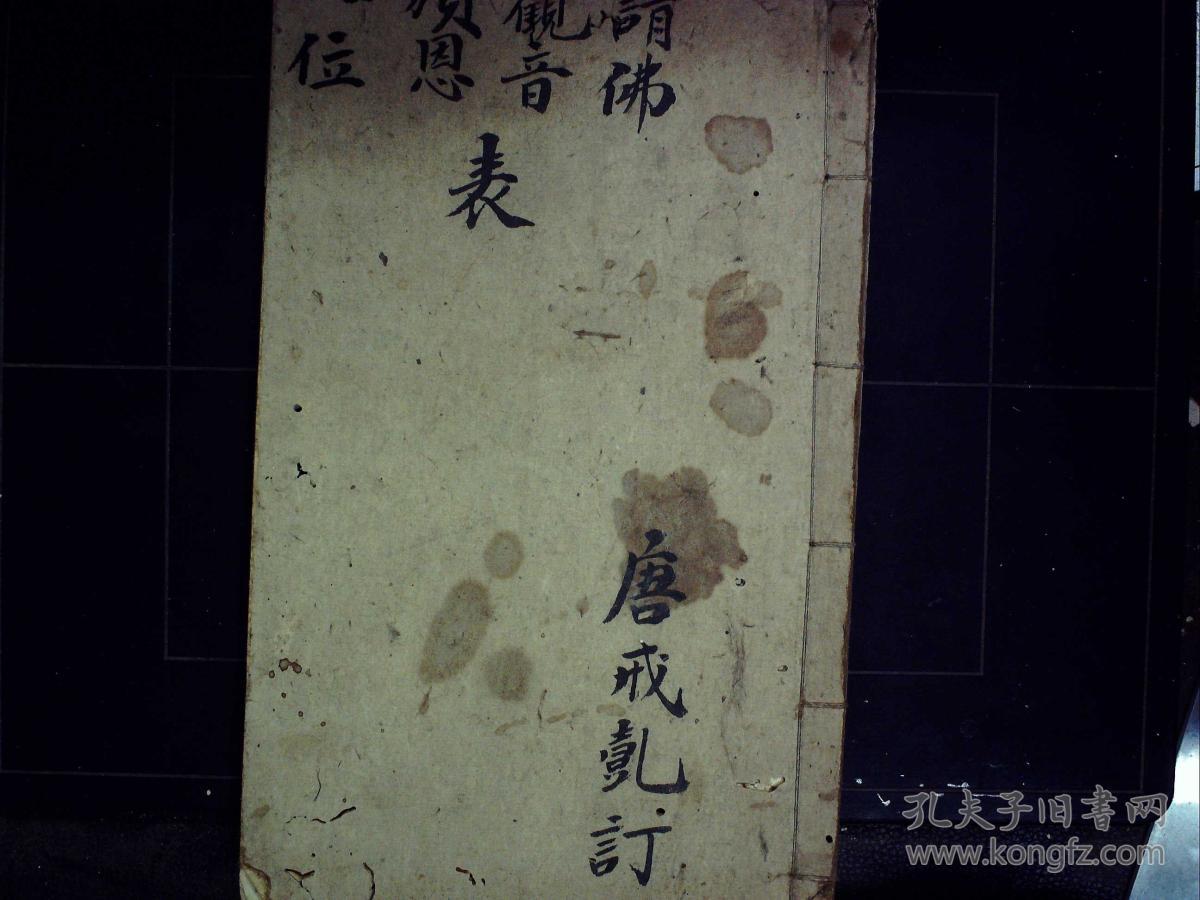 請佛
觀音
恩
位
表
唐戒訂
孔夫子旧書网
www.kongfz.com